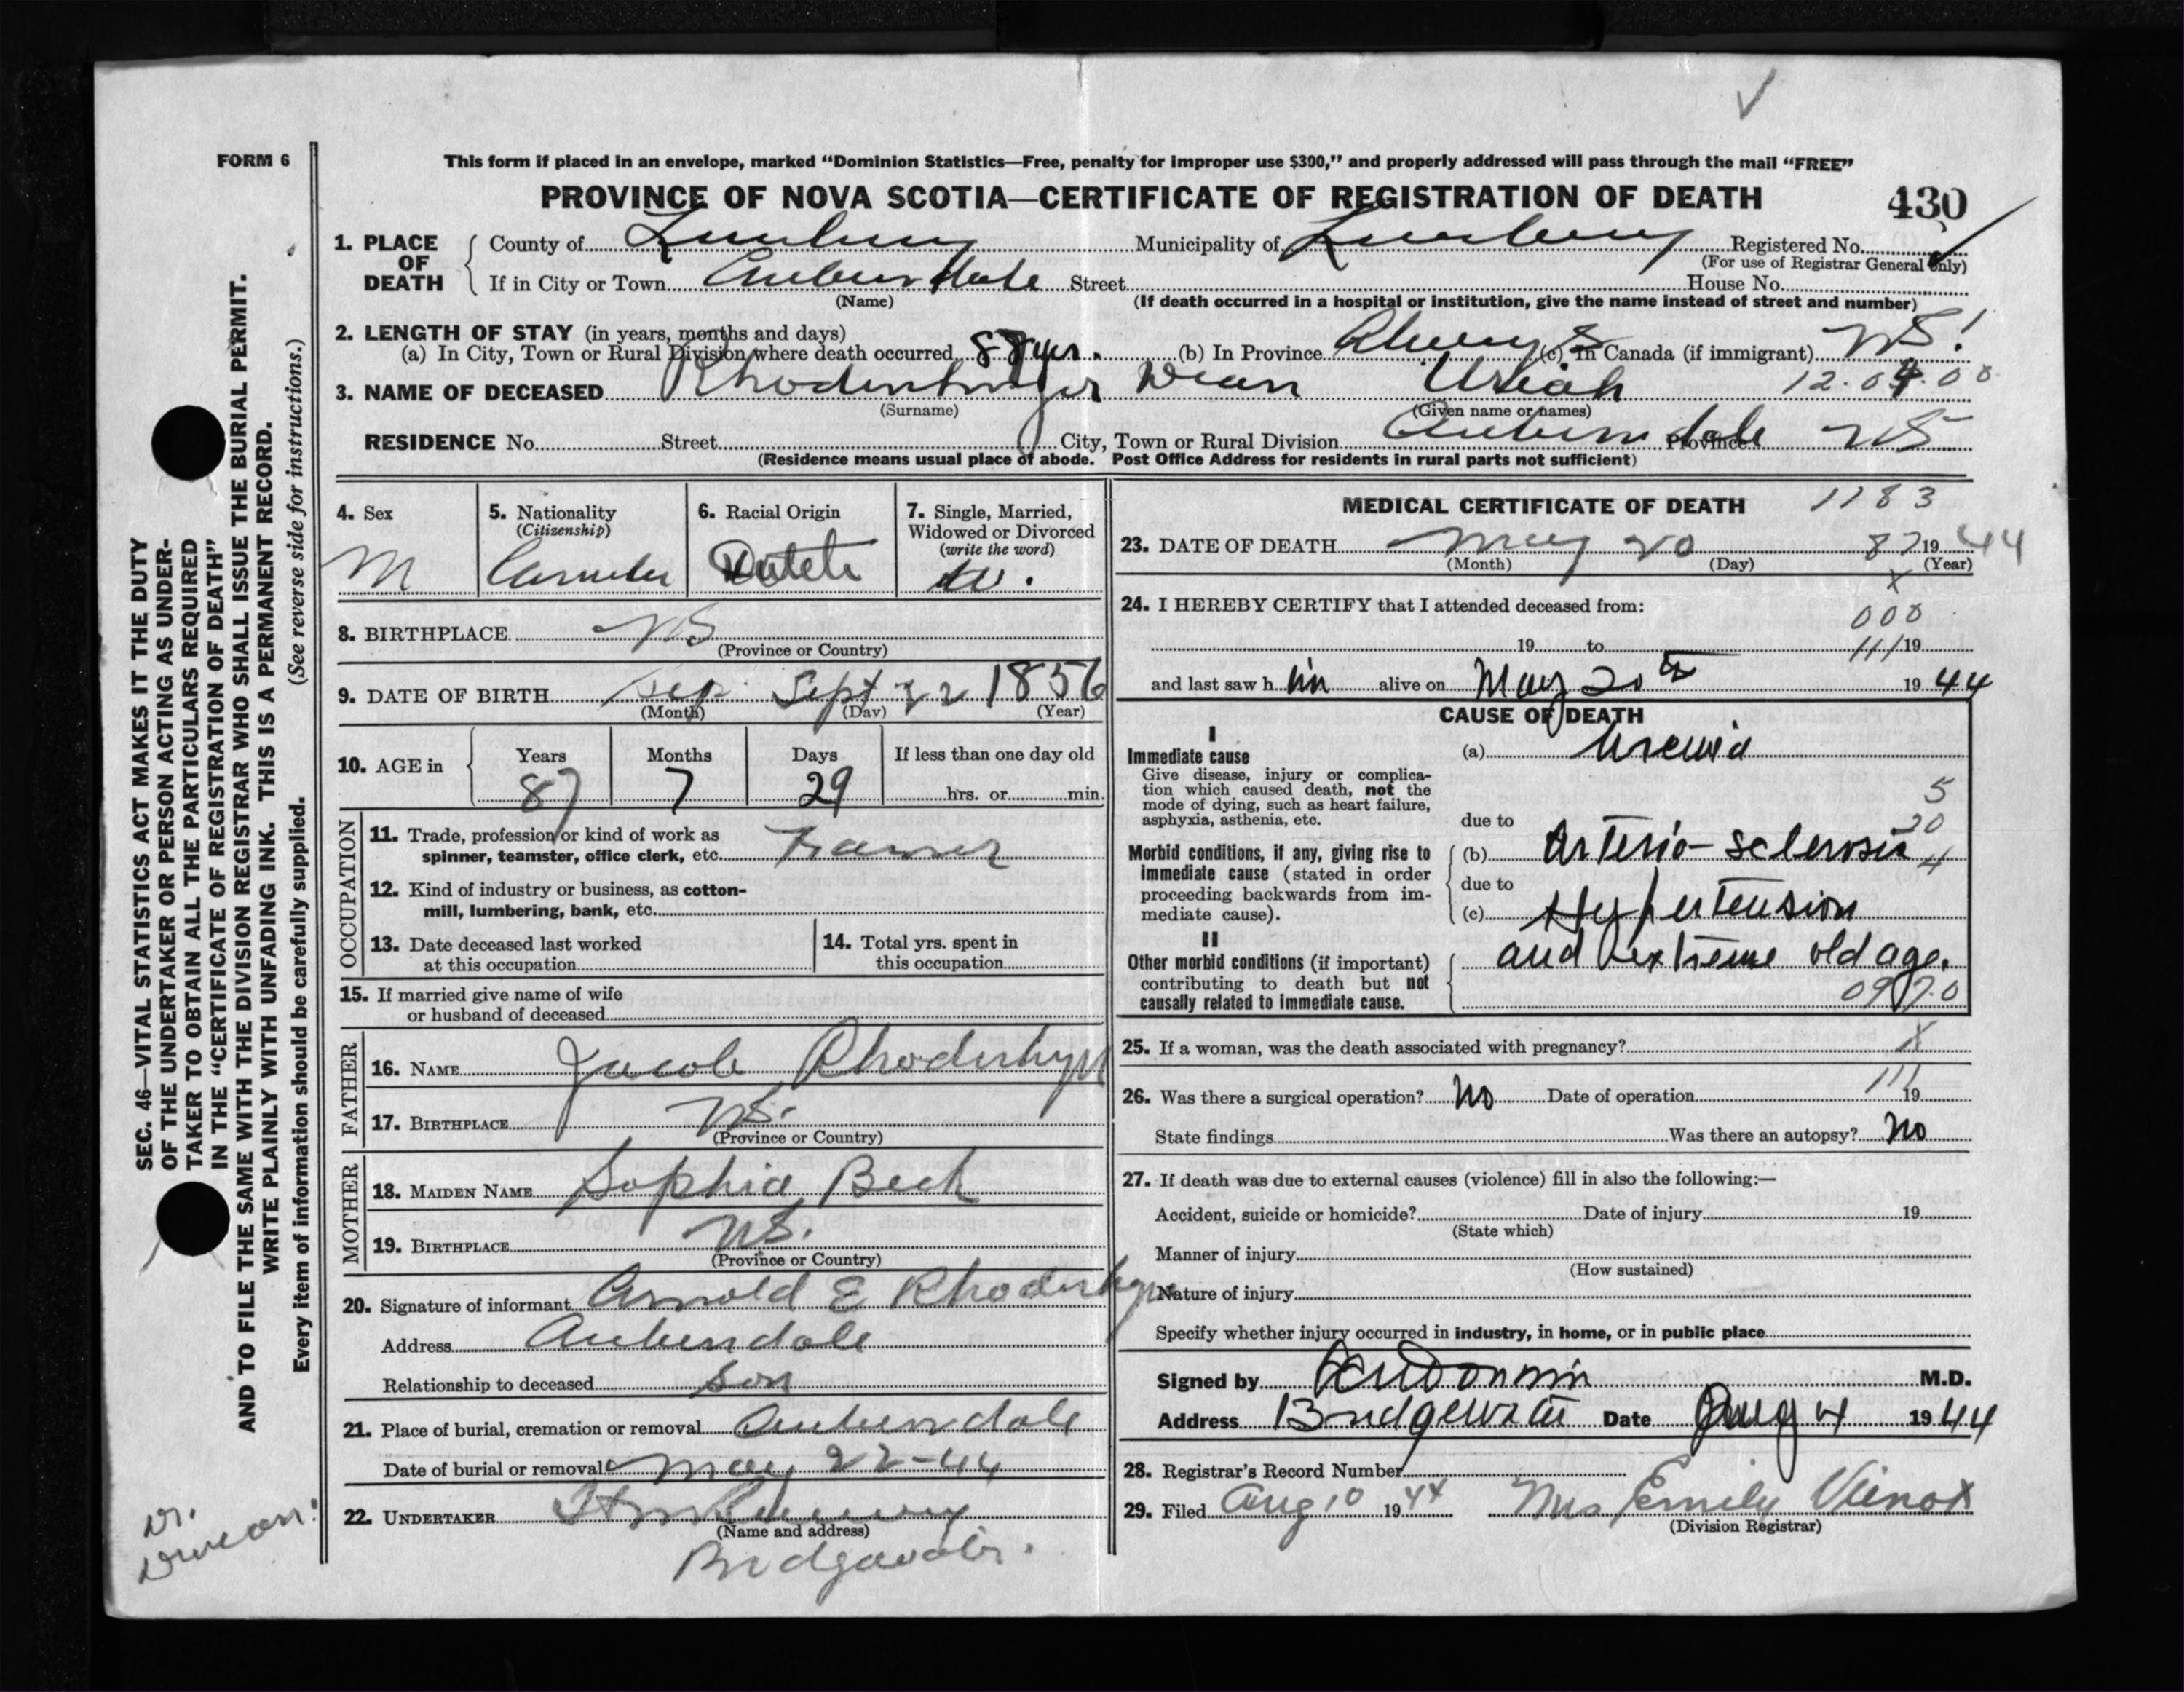 FORM 6
This form if placed in an envelope, marked "Dominion Statistics—Free, penalty for improper use $300," and properly addressed will pass through the mail "FREE"
PROVINCE OF NOVA SCOTIA—CERTIFICATE OF REGISTRATION OF DEATH 430
1. PLACE OF DEATH County of Lunenburg Municipality of Lunenburg Registered No.
(For use of Registrar General only)
If in City or Town Auburndale Street House No.
(Name) (If death occurred in a hospital or institution, give the name instead of street and number)
2. LENGTH OF STAY (in years, months and days)
(a) In City, Town or Rural Division where death occurred 88 yrs. (b) In Province Always (c) In Canada (if immigrant) NS!
3. NAME OF DECEASED Dean Uriah 12.04.00
(Surname) (Given name or names)
RESIDENCE No. Street City, Town or Rural Division Auburndale Province NS
(Residence means usual place of abode. Post Office Address for residents in rural parts not sufficient)
4. Sex M
5. Nationality (Citizenship)
6. Racial Origin Dutch
7. Single, Married, Widowed or Divorced (write the word) W.
8. BIRTHPLACE NS
(Province or Country)
9. DATE OF BIRTH Sept 22 1856
(Month) (Day) (Year)
10. AGE in Years Months Days If less than one day old
87 7 29 hrs. or min.
OCCUPATION
11. Trade, profession or kind of work as
spinner, teamster, office clerk, etc. Farmer
12. Kind of industry or business, as cotton-
mill, lumbering, bank, etc.
13. Date deceased last worked
at this occupation
14. Total yrs. spent in
this occupation
15. If married give name of wife
or husband of deceased
FATHER
16. NAME Jacob Rhodenhyr
17. BIRTHPLACE NS.
(Province or Country)
MOTHER
18. MAIDEN NAME Sophia Beck
19. BIRTHPLACE NS.
(Province or Country)
20. Signature of informant Arnold E
Address Auburndale
Relationship to deceased Son
21. Place of burial, cremation or removal Auburndale
Date of burial or removal May 22-44
22. UNDERTAKER
(Name and address)
Bridgewater.
MEDICAL CERTIFICATE OF DEATH 1183
23. DATE OF DEATH May 20 87 19 44
(Month) (Day) (Year)
x
24. I HEREBY CERTIFY that I attended deceased from:
000
19 to 111 19
and last saw h im alive on May 20th 19 44
CAUSE OF DEATH
I
Immediate cause (a) Uremia
Give disease, injury or complica-
tion which caused death, not the
mode of dying, such as heart failure,
asphyxia, asthenia, etc.
5
due to 20
Morbid conditions, if any, giving rise to
immediate cause (stated in order
proceeding backwards from im-
mediate cause).
(b) Arterio-sclerosis 4
due to
(c) Hypertension
II
Other morbid conditions (if important)
contributing to death but not
causally related to immediate cause.
and extreme old age.
0970
25. If a woman, was the death associated with pregnancy? X
26. Was there a surgical operation? No Date of operation 111 19
State findings Was there an autopsy? No
27. If death was due to external causes (violence) fill in also the following:—
Accident, suicide or homicide? Date of injury 19
(State which)
Manner of injury
(How sustained)
Nature of injury
Specify whether injury occurred in industry, in home, or in public place
Signed by M.D.
Address Bridgewater Date Aug 4 19 44
28. Registrar's Record Number
29. Filed Aug 10 19 44 Mrs Emily Vienot
(Division Registrar)
SEC. 46—VITAL STATISTICS ACT MAKES IT THE DUTY
OF THE UNDERTAKER OR PERSON ACTING AS UNDER-
TAKER TO OBTAIN ALL THE PARTICULARS REQUIRED
IN THE "CERTIFICATE OF REGISTRATION OF DEATH"
AND TO FILE THE SAME WITH THE DIVISION REGISTRAR WHO SHALL ISSUE THE BURIAL PERMIT.
WRITE PLAINLY WITH UNFADING INK. THIS IS A PERMANENT RECORD.
Every item of information should be carefully supplied. (See reverse side for instructions.)
Dr.